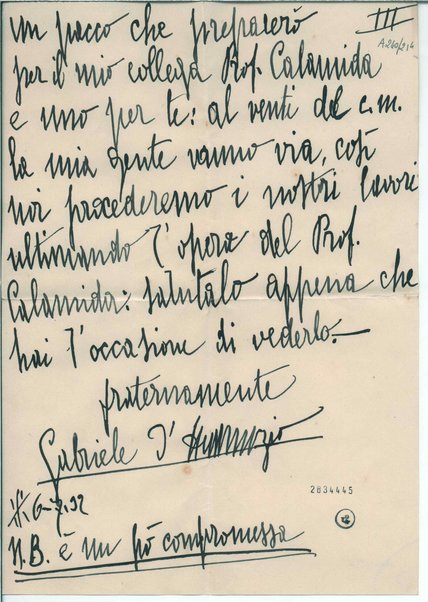 III
A.260/214
un pacco che preparerò
per il mio collega Prof. Calamida
e uno per te: al venti del c.m.
la mia gente vanno via, così
noi procederemo i nostri lavori
ultimando l'opera del Prof.
Calamida: salutalo appena che
hai l'occasione di vederlo.—
fraternamente
Gabriele D'Annunzio
6-7.32
2834445
N.B. è un pò compromessa